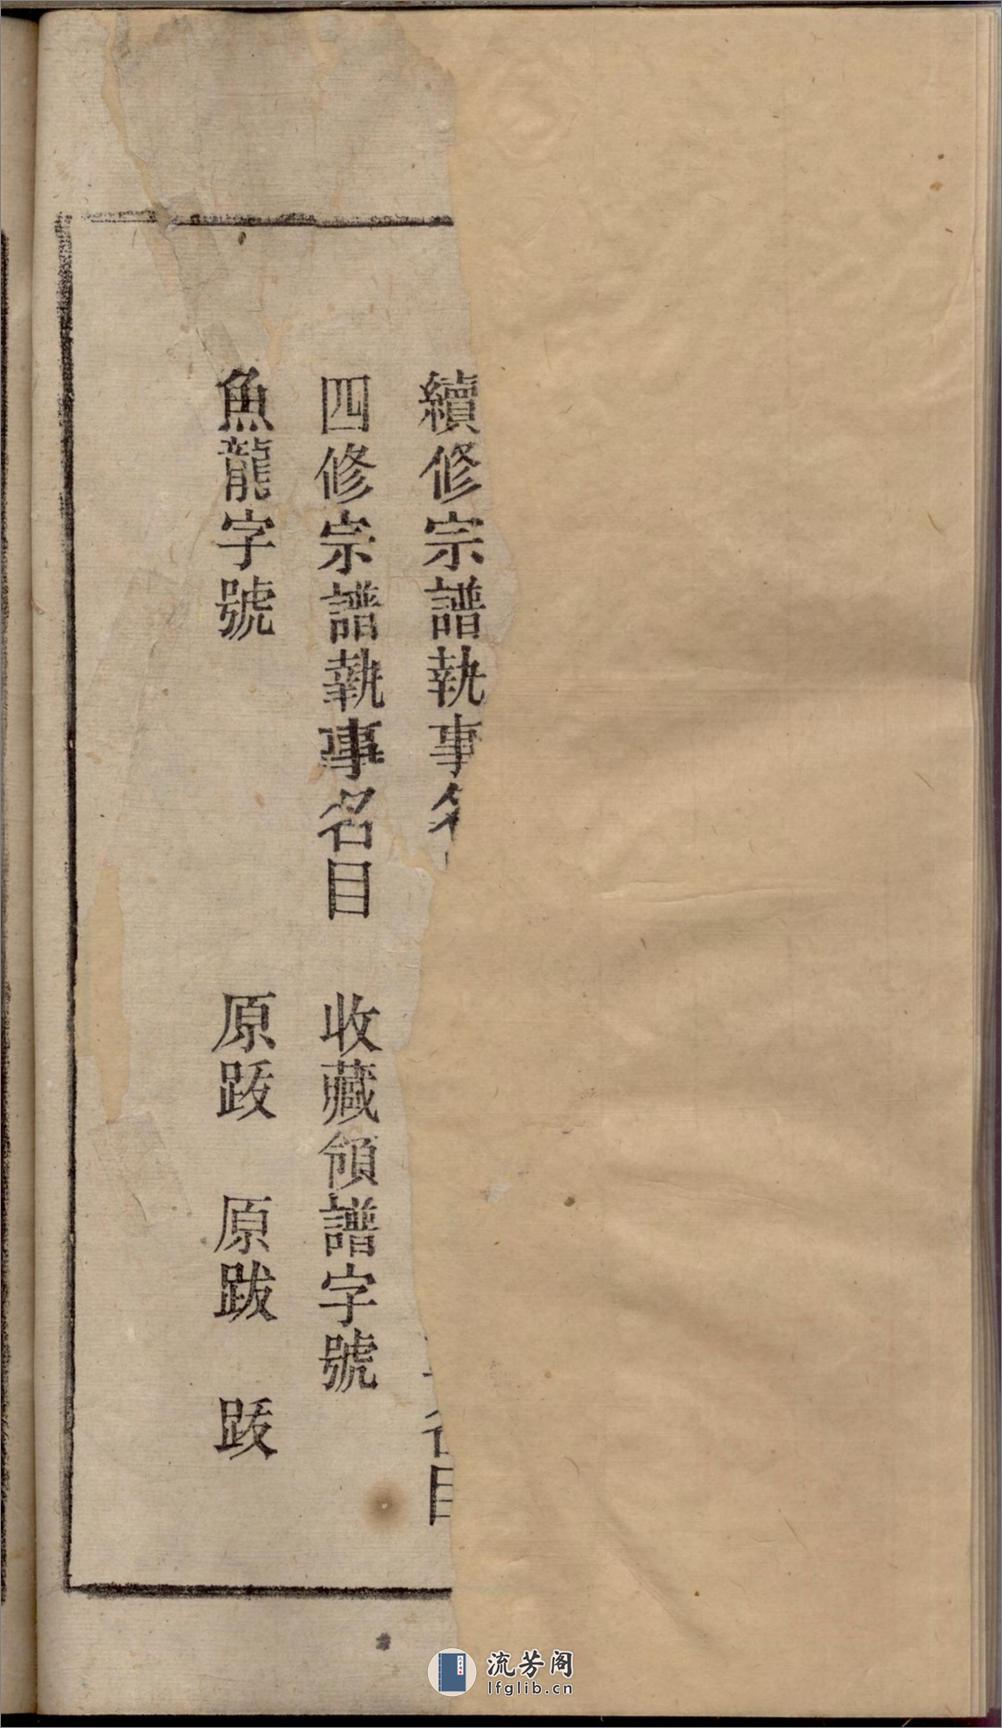 續修宗譜執事名
名目
四修宗譜執事名目 收藏領譜字號
魚龍字號 原跋 原跋 跋
流芳阁
lfglib.cn